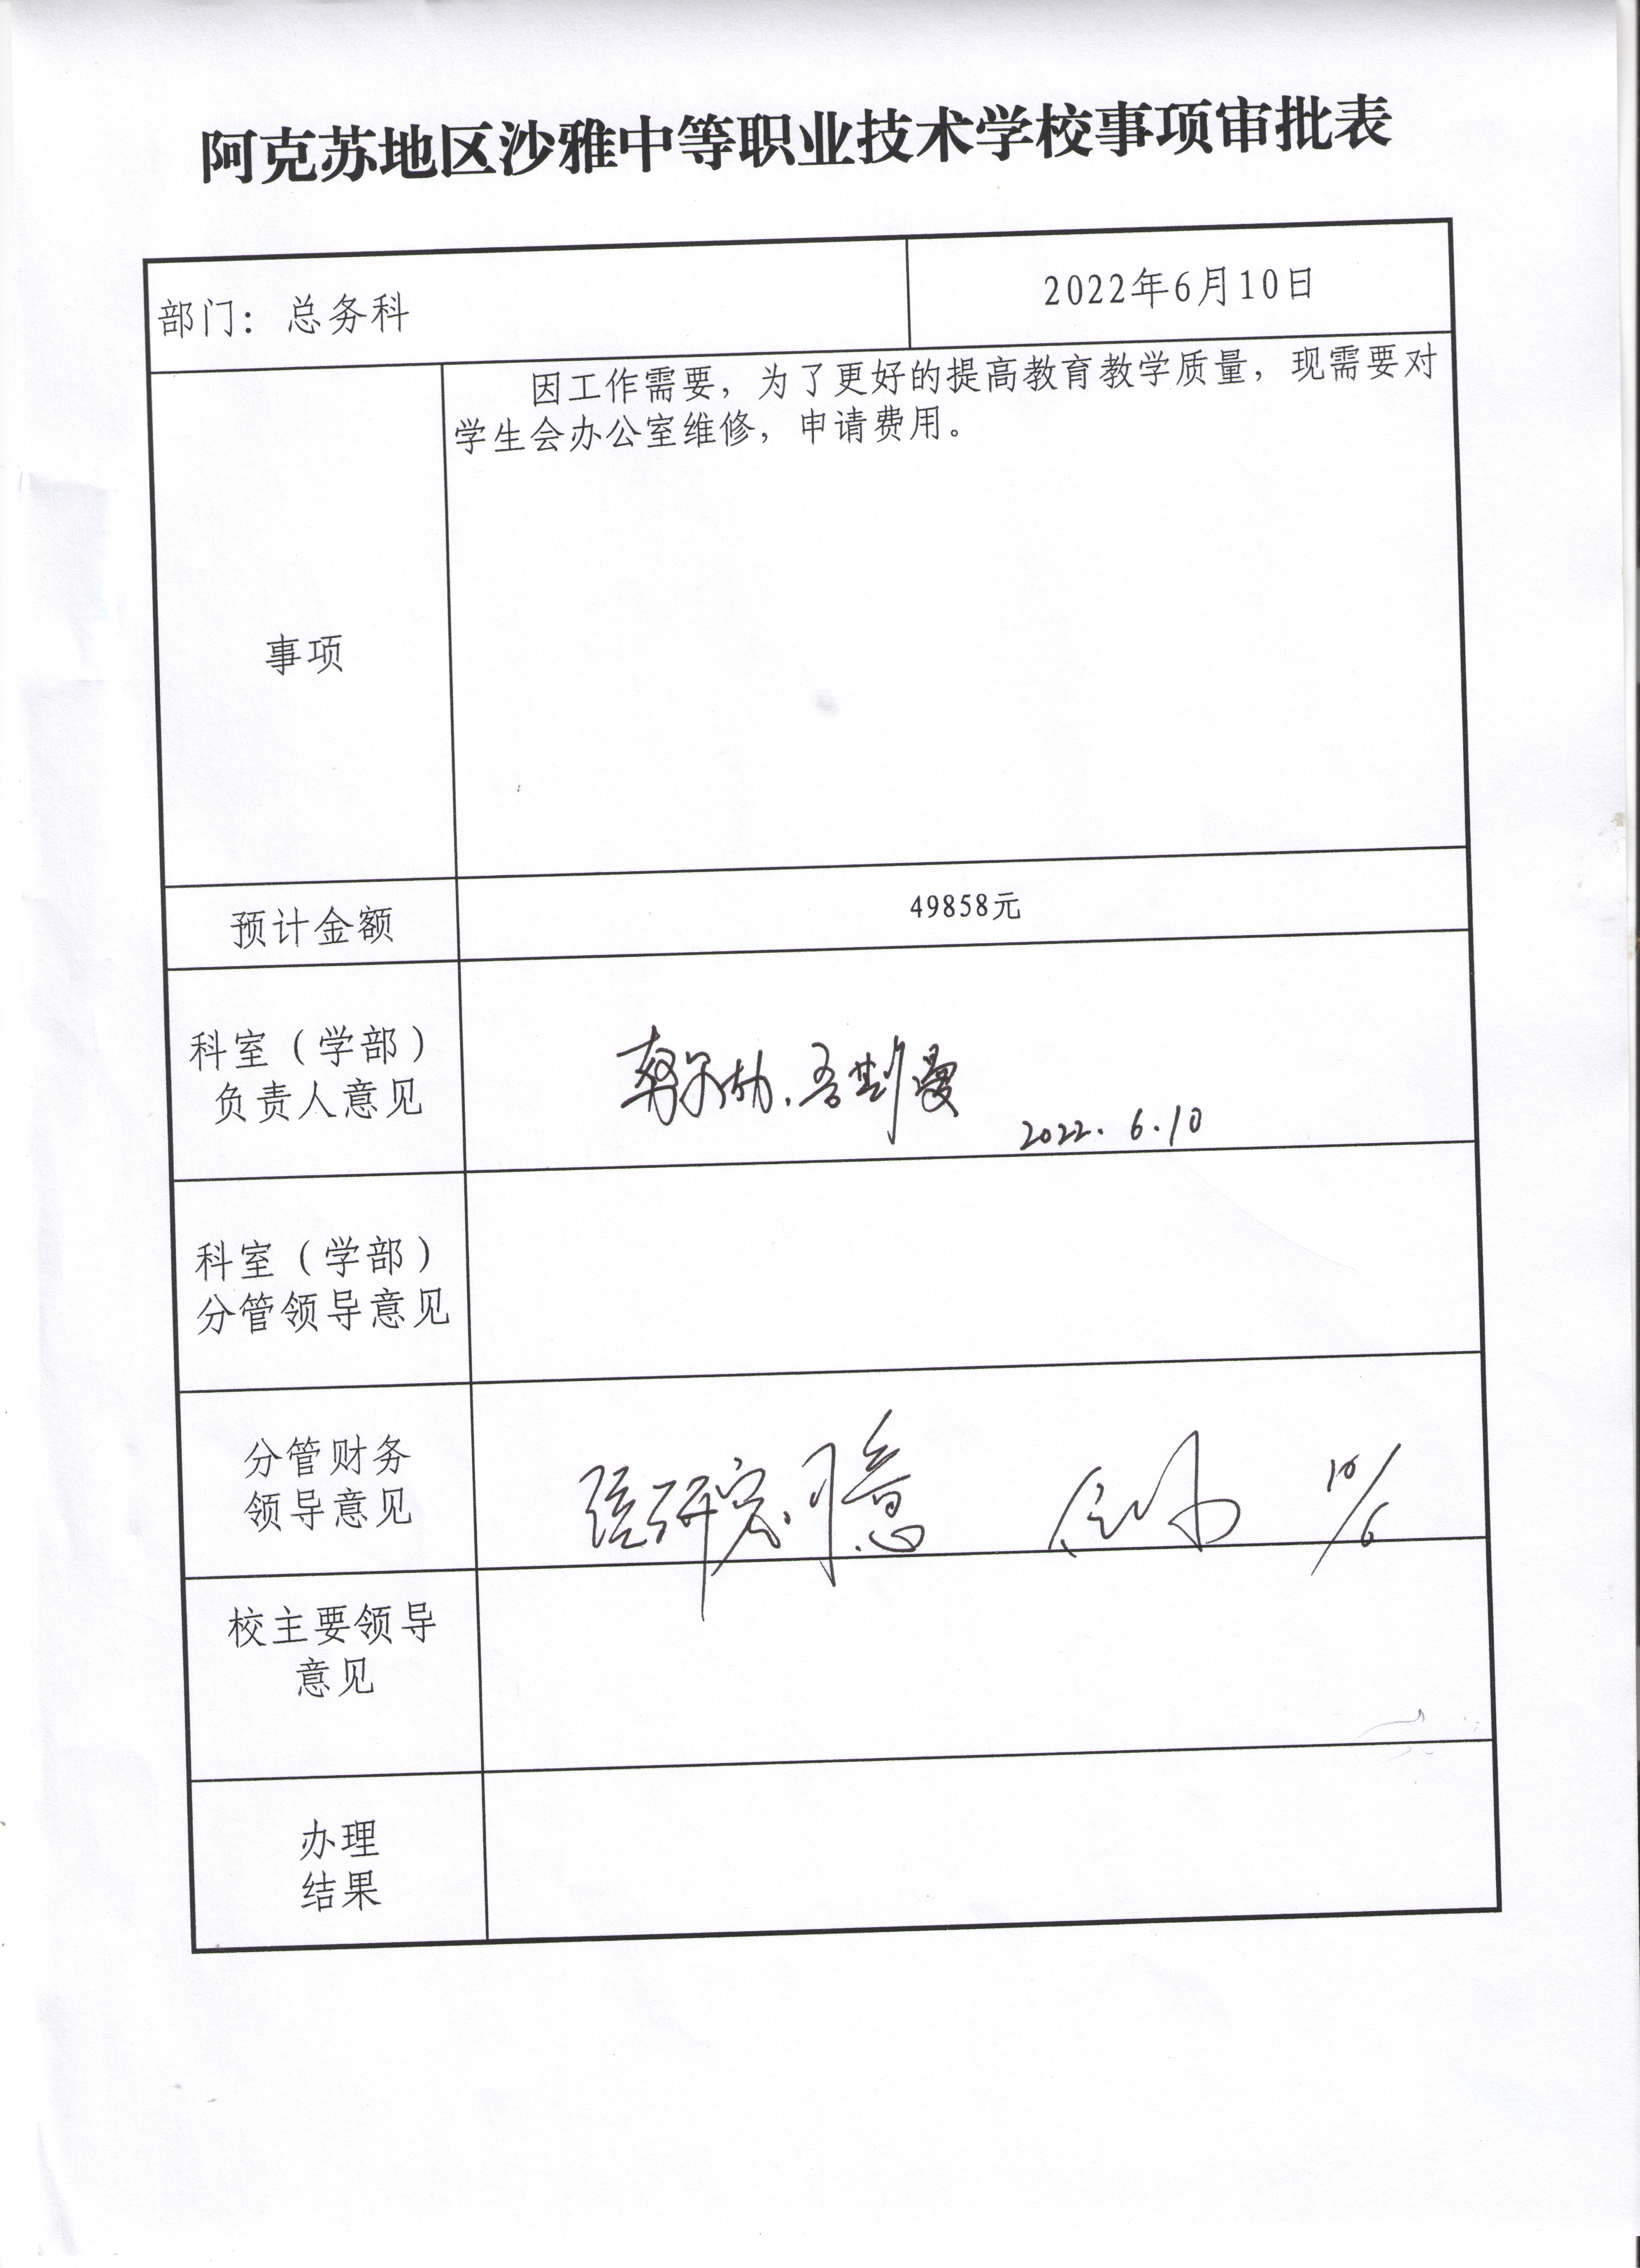 阿克苏地区沙雅中等职业技术学校事项审批表
部门：总务科
2022年6月10日
事项
因工作需要，为了更好的提高教育教学质量，现需要对
学生会办公室维修，申请费用。
预计金额
49858元
科室（学部）
负责人意见
2022.6.10
科室（学部）
分管领导意见
分管财务
领导意见
经研究.同意
10/6
校主要领导
意见
办理
结果